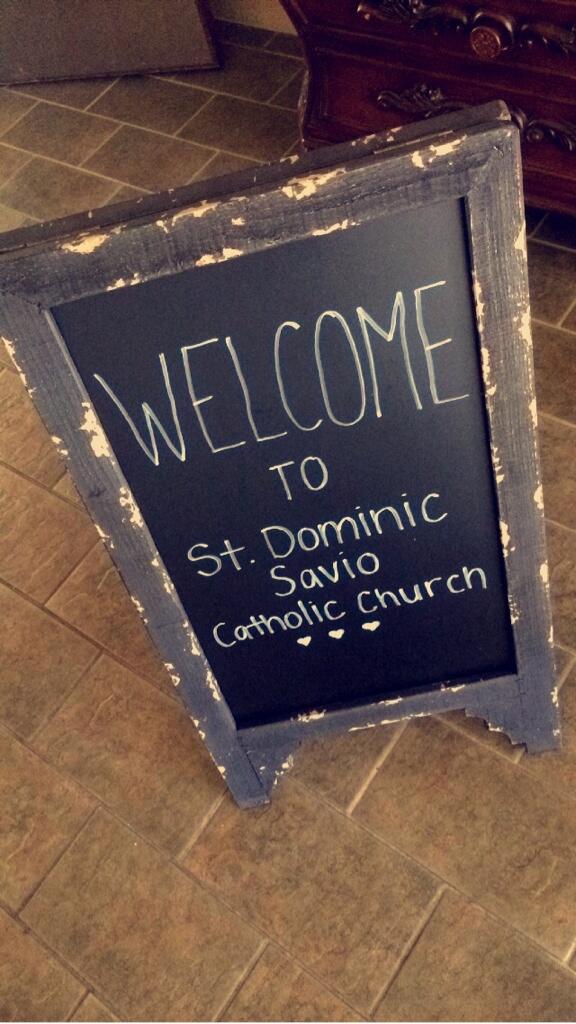 WELCOME
TO
St. Dominic
Savio
Catholic Church